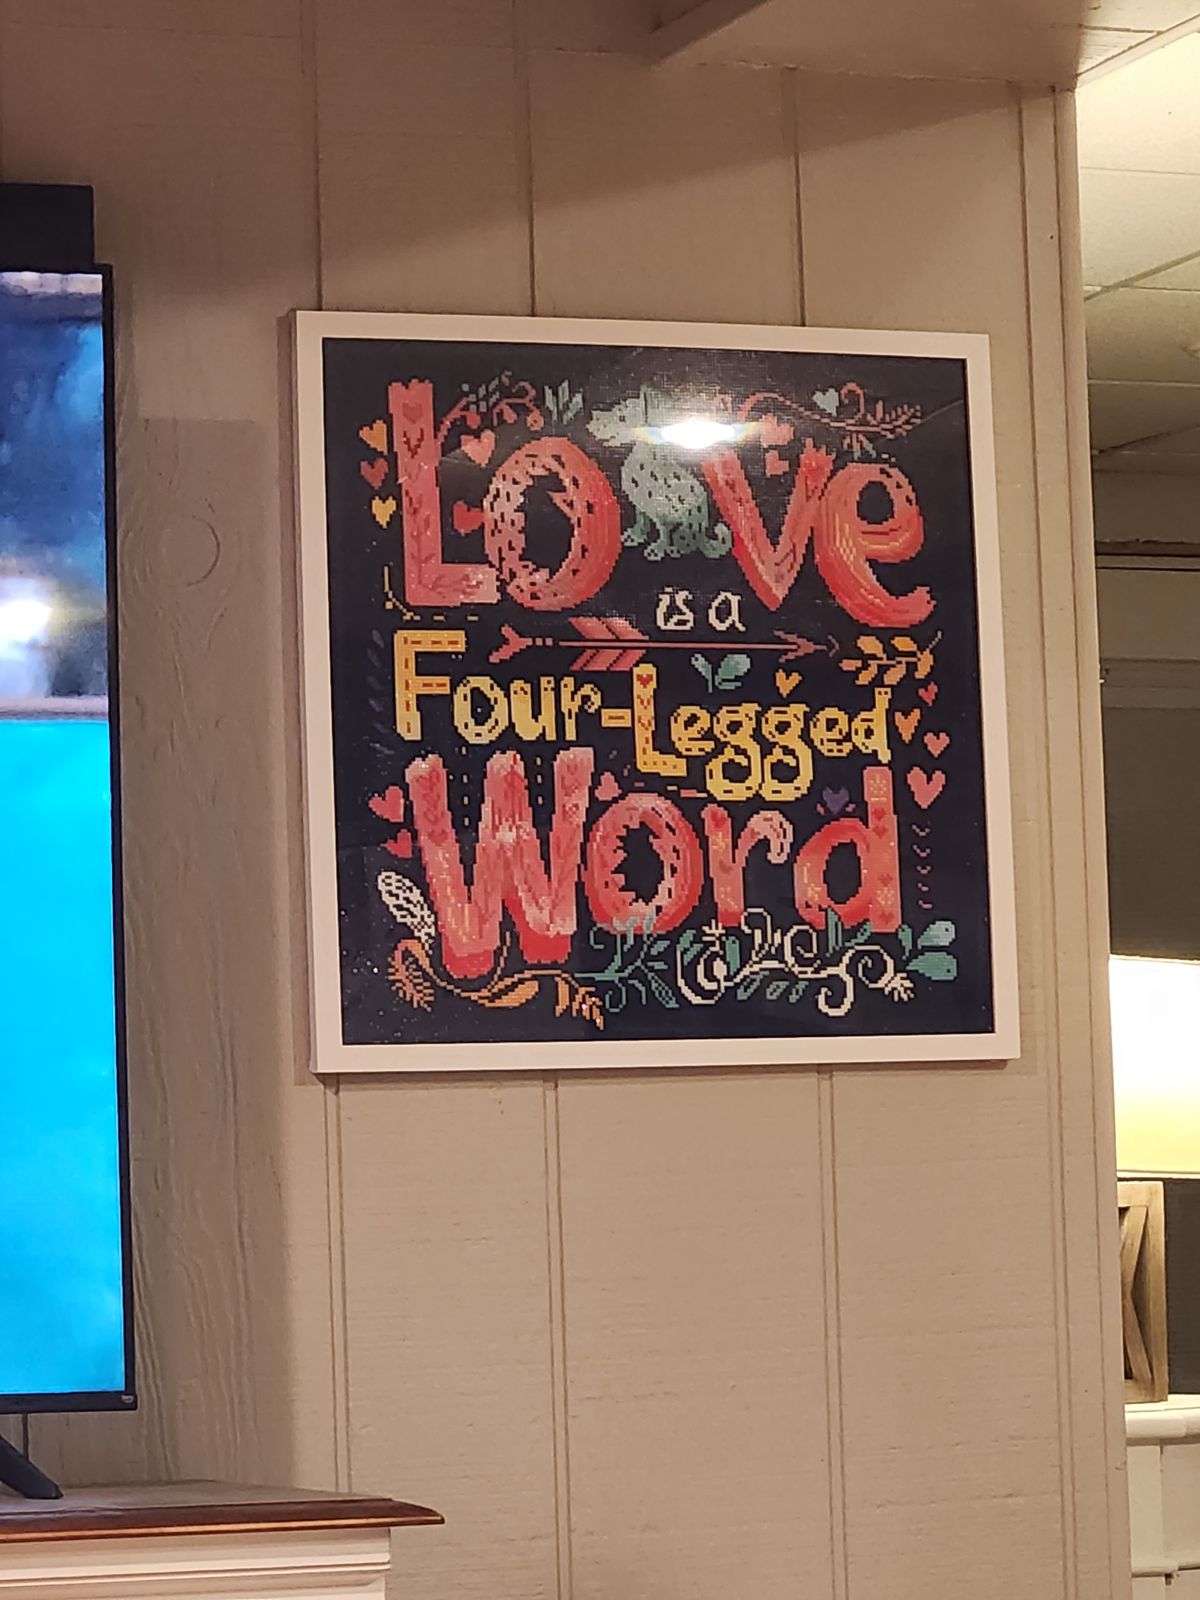 Love
is a
Four-Legged
Word